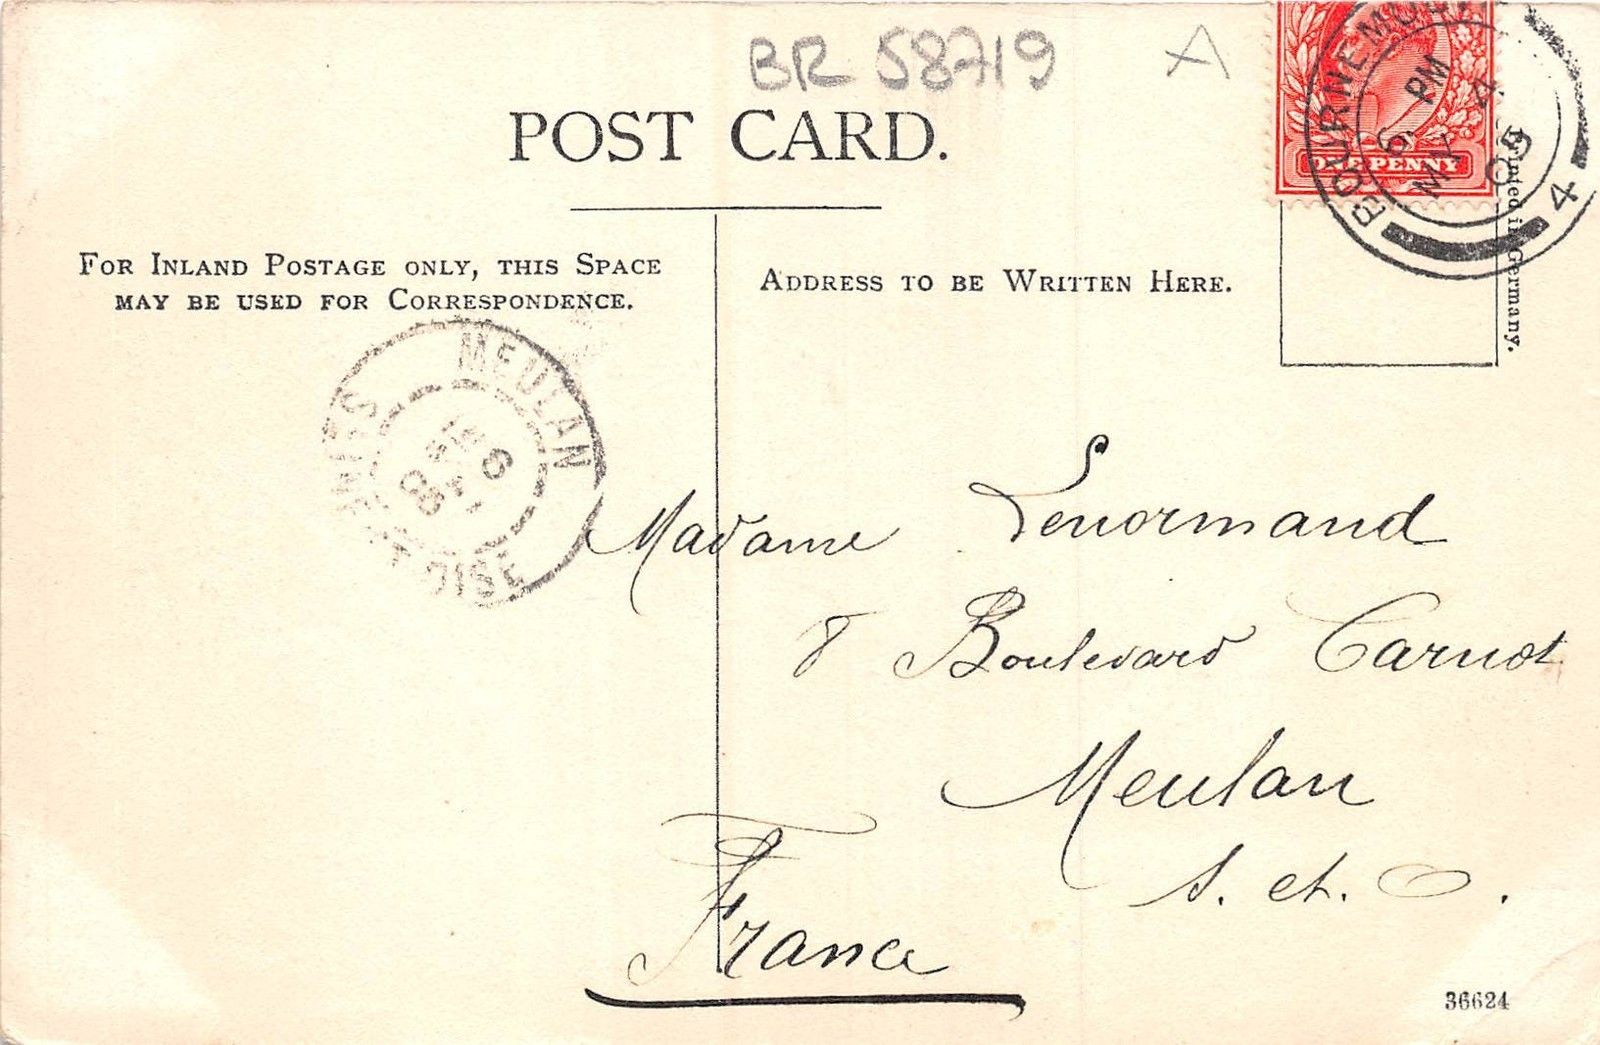 BR 58719 A
POST CARD.
FOR INLAND POSTAGE ONLY, THIS SPACE
MAY BE USED FOR CORRESPONDENCE.
ADDRESS TO BE WRITTEN HERE.
ONE PENNY
BOURNEMOUTH
6. PM
MY 4
05
4
Printed in Germany.
MEULAN
OISE
Madame Lenormand
8 Boulevard Carnot
Meulan
S. et. O.
France
36624